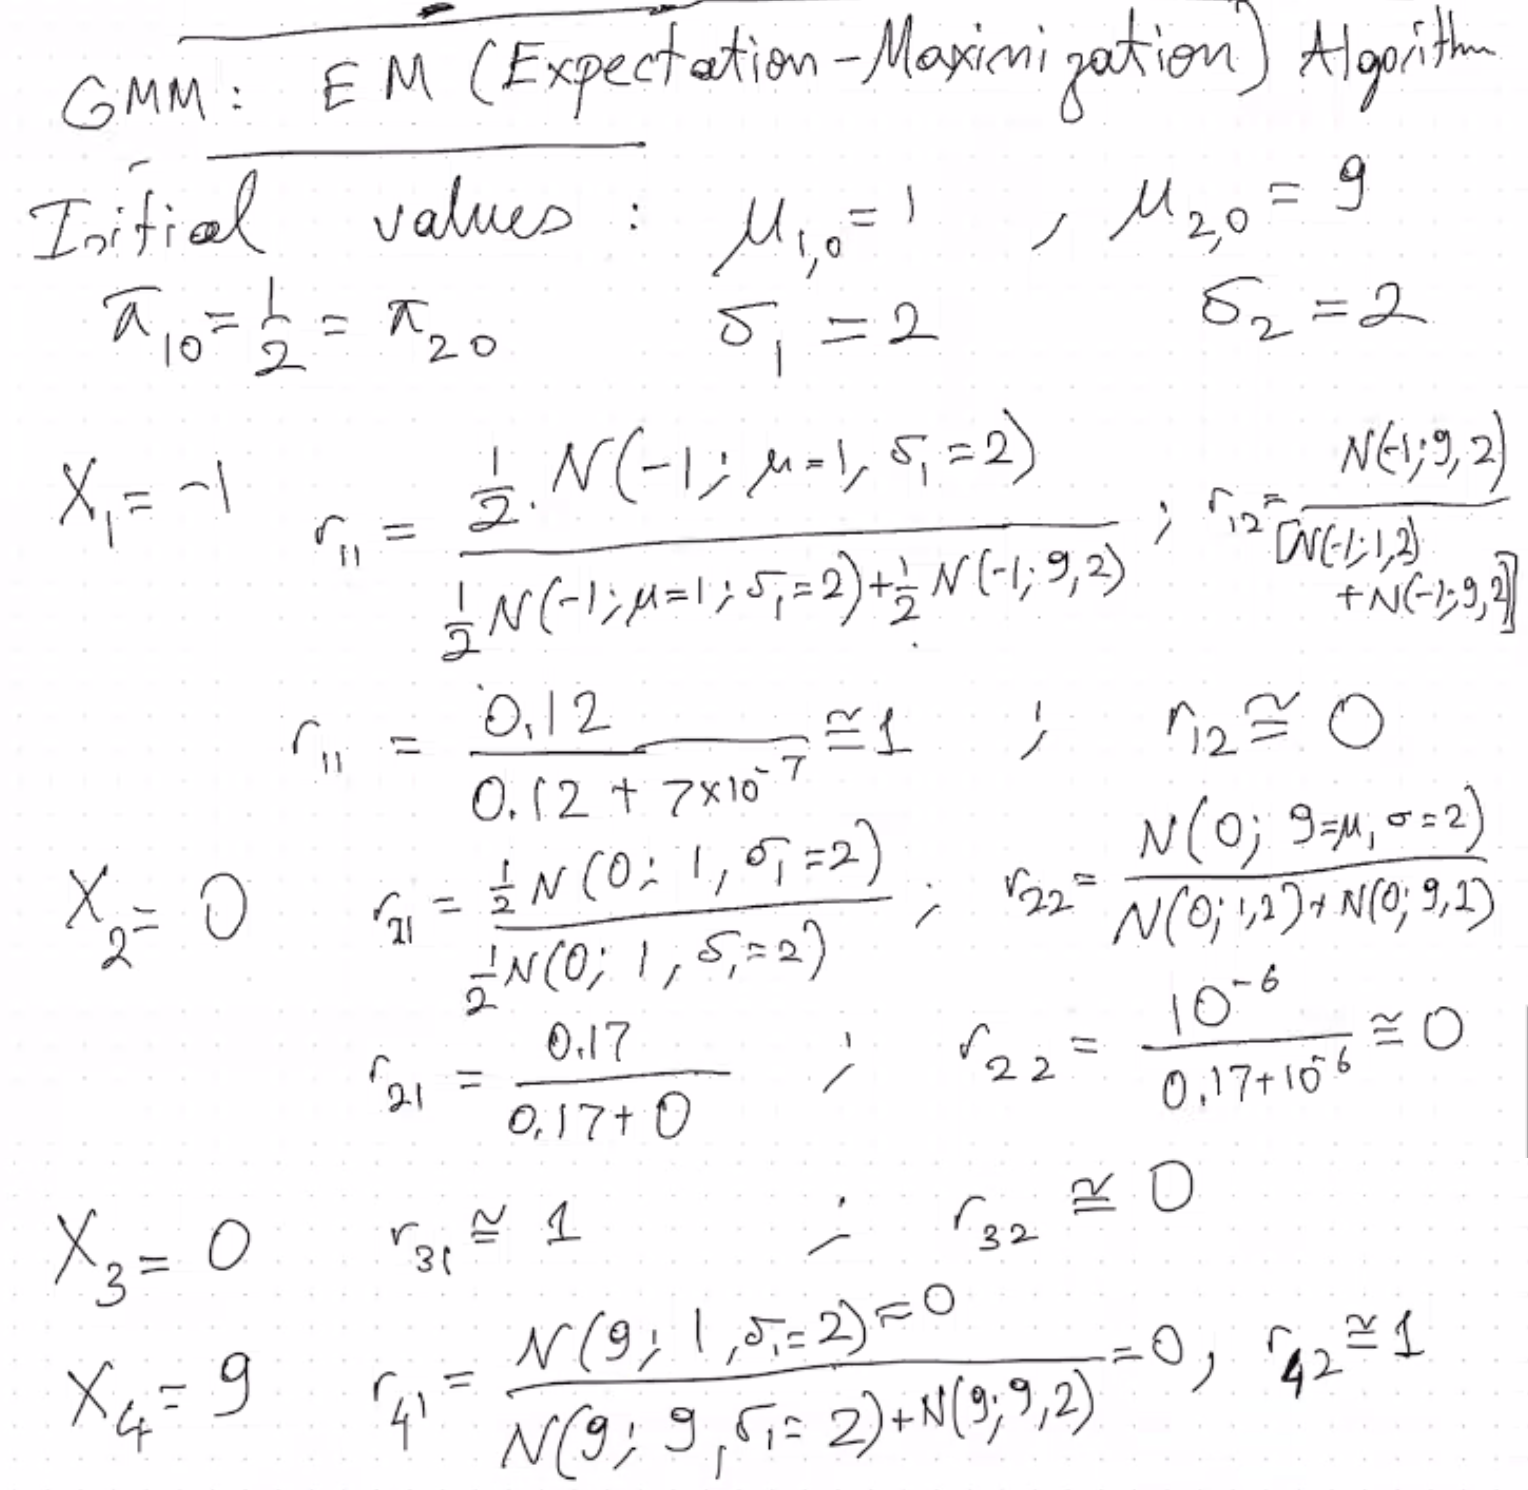 GMM: EM (Expectation-Maximization) Algorithm
Initial values : μ₁,₀ = 1 , μ₂,₀ = 9
π₁₀ = 1/2 = π₂₀ σ₁ = 2 σ₂ = 2
X₁ = -1 r₁₁ = (1/2 · N(-1; μ=1, σ₁=2)) / (1/2 N(-1; μ=1; σ₁=2) + 1/2 N(-1; 9, 2)) ; r₁₂ = N(-1; 9, 2) / [N(-1; 1, 2) + N(-1; 9, 2)]
r₁₁ = 0.12 / (0.12 + 7×10⁻⁷) ≅ 1 ; r₁₂ ≅ 0
X₂ = 0 r₂₁ = (1/2 N(0; 1, σ₁=2)) / (1/2 N(0; 1, σ₁=2)) ; r₂₂ = N(0; 9=μ, σ=2) / (N(0; 1, 2) + N(0; 9, 2))
r₂₁ = 0.17 / (0.17 + 0) ; r₂₂ = 10⁻⁶ / (0.17 + 10⁻⁶) ≅ 0
X₃ = 0 r₃₁ ≅ 1 ; r₃₂ ≅ 0
X₄ = 9 r₄₁ = (N(9; 1, σ₁=2) ≈ 0) / (N(9; 9, σ₁=2) + N(9; 9, 2)) = 0, r₄₂ ≅ 1